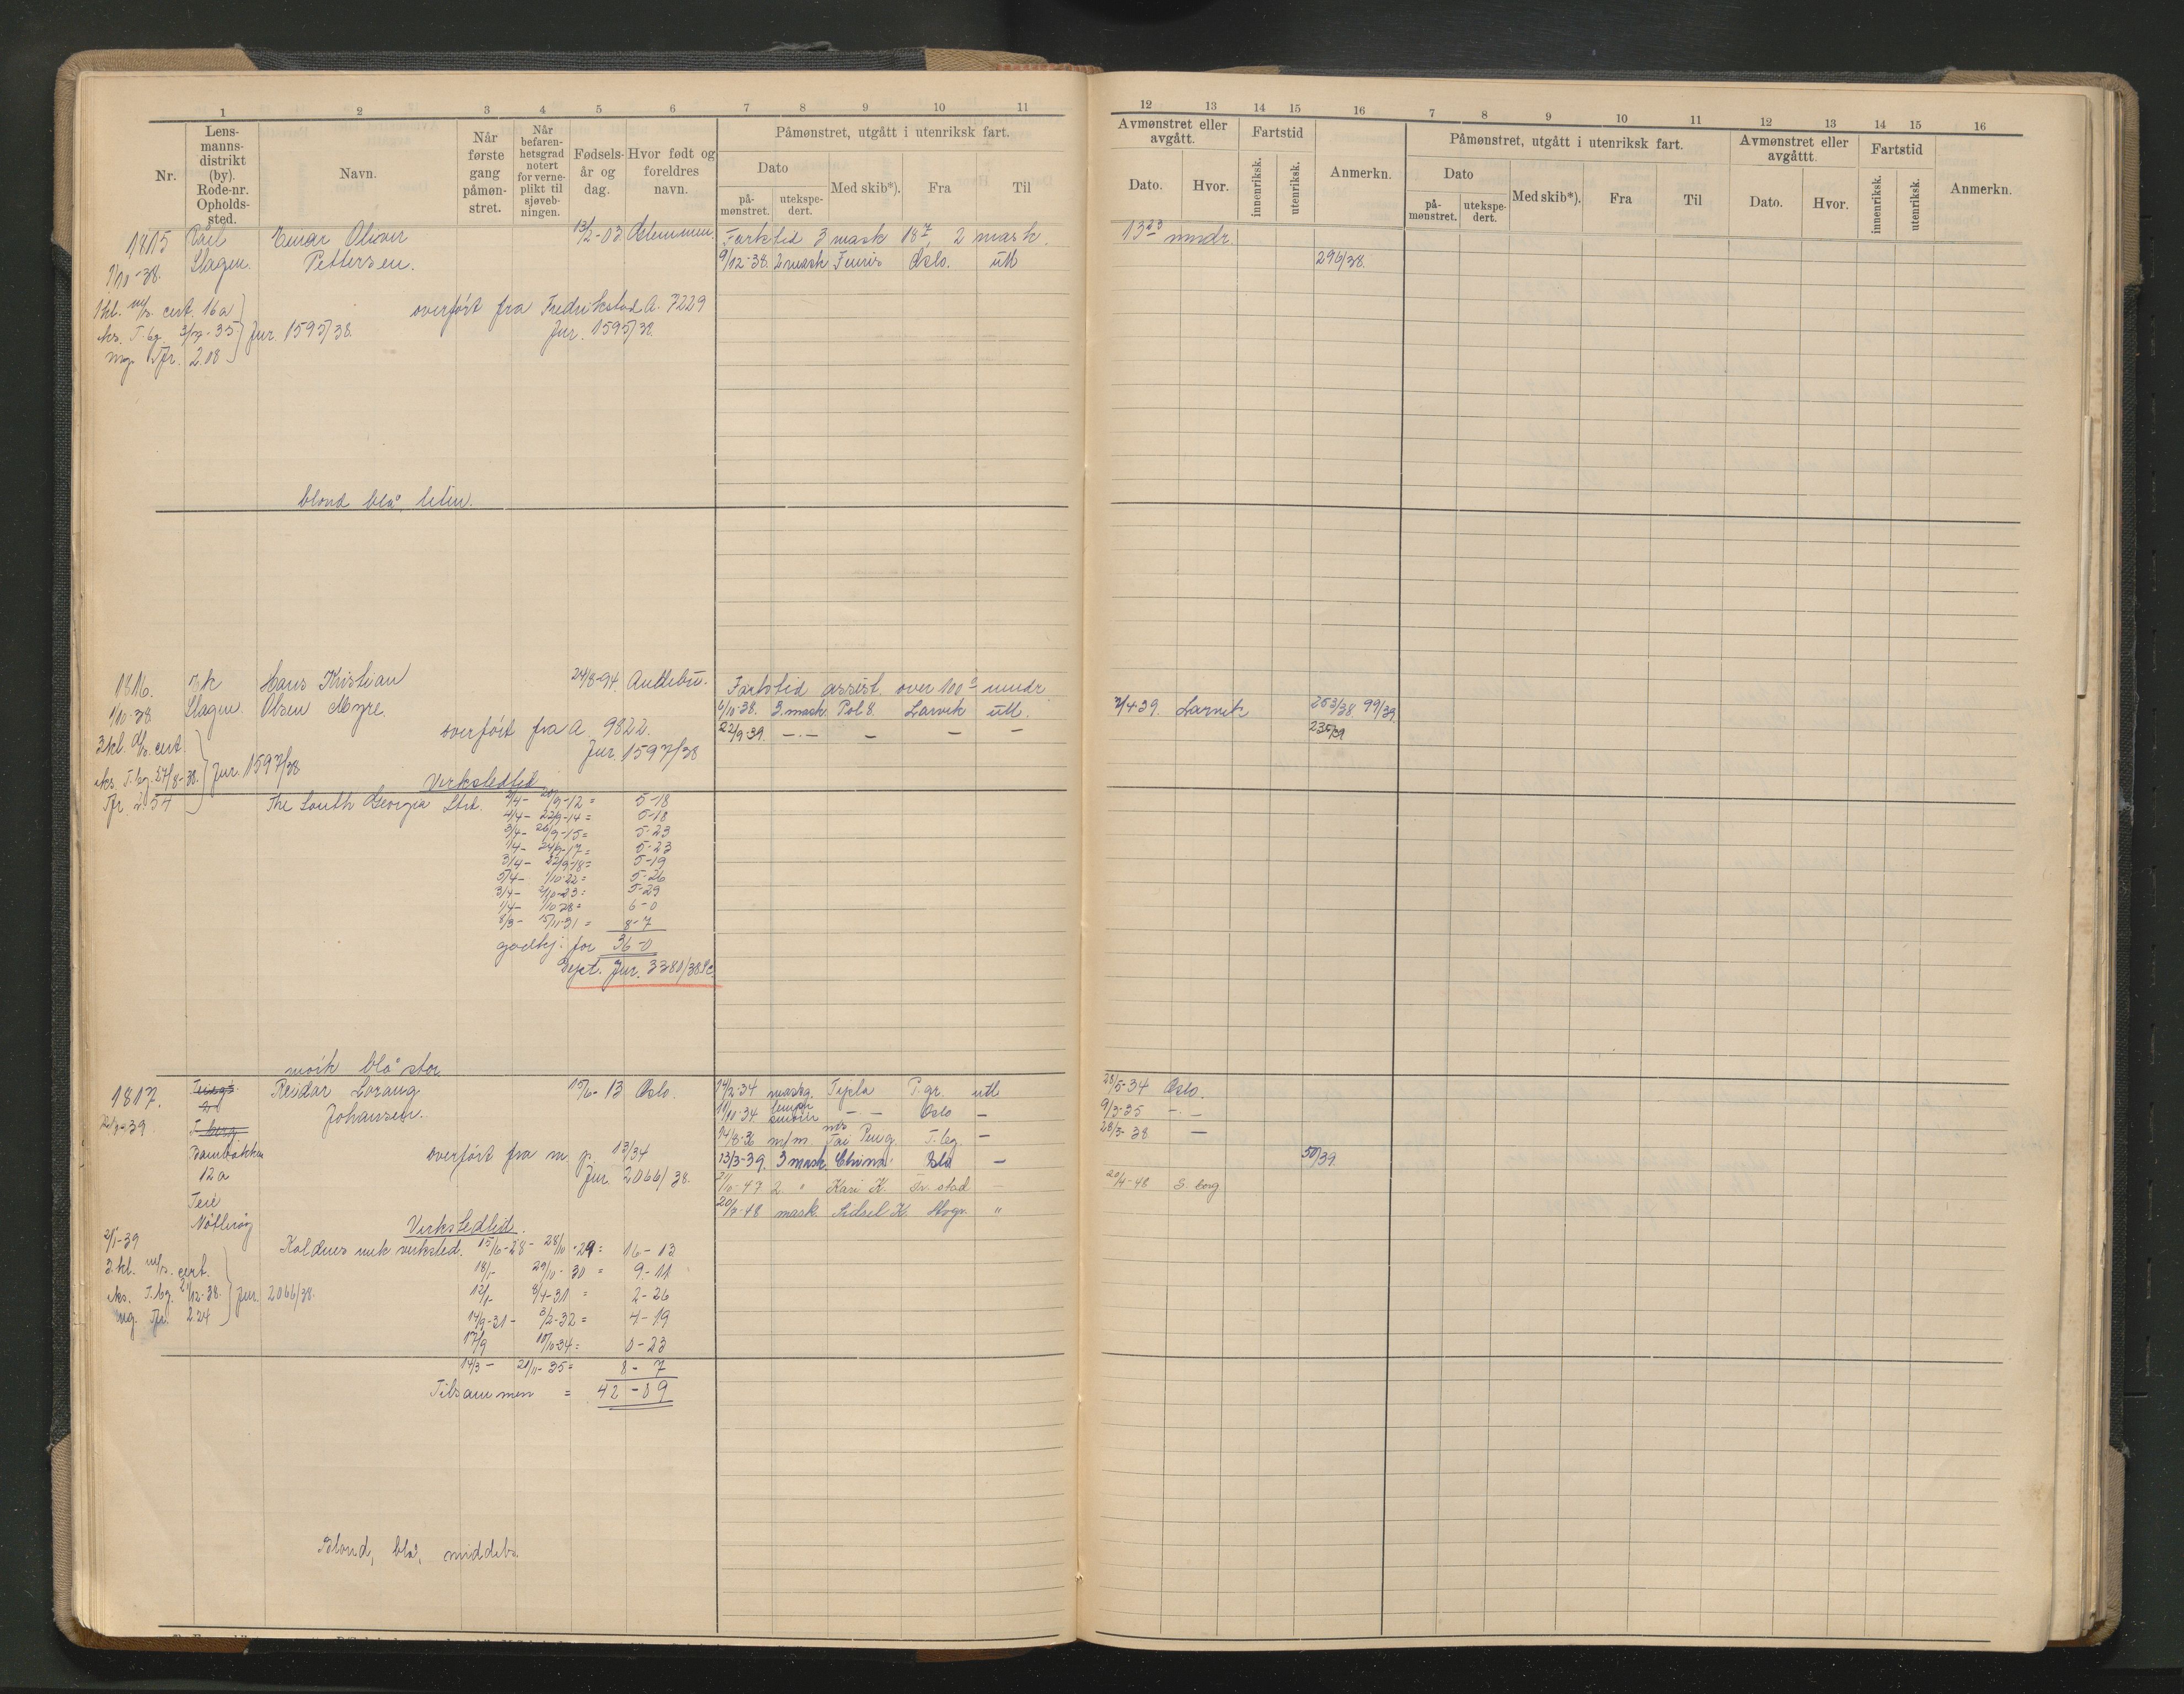 1 2 3 4 5 6 7 8 9 10 11
Nr.
Lens-
manns-
distrikt
(by).
Rode-nr.
Opholds-
sted.
Navn.
Når
første
gang
påmøn-
stret.
Når
befaren-
hetsgrad
notert
for verne-
plikt til
sjøveb-
ningen.
Fødsels-
år og
dag.
Hvor født og
foreldres
navn.
Påmønstret, utgått i utenriksk fart.
Dato
på-
mønstret.
utekspe-
dert.
Med skib*).
Fra
Til
12 13 14 15 16 7 8 9 10 11 12 13 14 15 16
Avmønstret eller
avgått.
Dato.
Hvor.
Fartstid
innenriksk.
utenriksk.
Anmerkn.
Påmønstret, utgått i utenriksk fart.
Dato
på-
mønstret.
utekspe-
dert.
Med skib*).
Fra
Til
Avmønstret eller
avgåttt.
Dato.
Hvor.
Fartstid
innenriksk.
utenriksk.
Anmerkn.
1815 Einar Oliver 13/2-03 Glemmen. Fartstid 3 mask 18 2 mask. 13 23 mndr.
1/10-38. Slagen. Pettersen. 9/12-38. 2 mask Oslo. utl 296/38.
1kl. m/s. cert. 16a
overført fra Fredrikstad A. 7229
eks. T.bg. 35 Jur. 1595/38. Jur. 1595/38.
208
blond blå liten.
1816. Hans Kristian 24/8-94. Andebu. Fartstid assist. over 100 mndr
1/10-38. Slagen. Olsen Myre. 6/10-38. 3. mask. Pol 8. Larvik utl. 2/4-39. Larvik 253/38. 99/39.
overført fra A. 9822. 22/9-39. — . — — — — 235/39
3.kl. cert. Jur. 1597/38
eks. T.bg. 27/8-38. Jur. 1597/38
Verkstedtid
2.54 The South Georgia Ltd. 2/4- 20/9-12 = 5-18
4/4- 22/9-14 = 5-18
3/4- 26/9-15 = 5-23
1/4- 24/9-17 = 5-23
3/4- 22/9-18 = 5-19
5/4- 1/10-22 = 5-26
3/4- 2/10-23 = 5-29
1/4- 1/10-28 = 6-0
8/3- 15/11-31 = 8-7
godkj. for 36-0
Dept. Jur. 3380/38
mørk blå stor
1817. Reidar Lorang 15/6-13 Oslo. 14/2-34 maskg. Tijela P.gr. utl 28/5-34 Oslo.
2/1-39. Johansen. 11/10-34 lemper smører — . — Oslo — 9/3-35 — . —
T.berg 14/8-36 m/m. m/s Tai Peng. T.bg. — 28/3-38 —
Bambakken overført fra m. p. 13/34 13/3-39. 3 mask. China Oslo — 50/39.
12a Jur. 2066/38. 47 2. " Kari K. Fr. stad — 20/4-48 S. borg
Teie 20/7-48 mask. Sidsel K. "
Nøtterøy
Verkstedtid.
2/1-39 Kaldnes mek verksted. 15/6-28 - 28/10-29 = 16-13
3.kl. m/s. cert. 18/1- 29/10-30 = 9-11
eks. T.bg. 21/12-38. Jur. 2066/38. 13/1- 8/4-31 = 2-26
2.24 14/9-31 - 3/2-32 = 4-19
17/9 10/10-34 = 0-23
14/3 - 20/11-35 = 8-7
Tilsammen = 42-09
Blond, blå, middels.